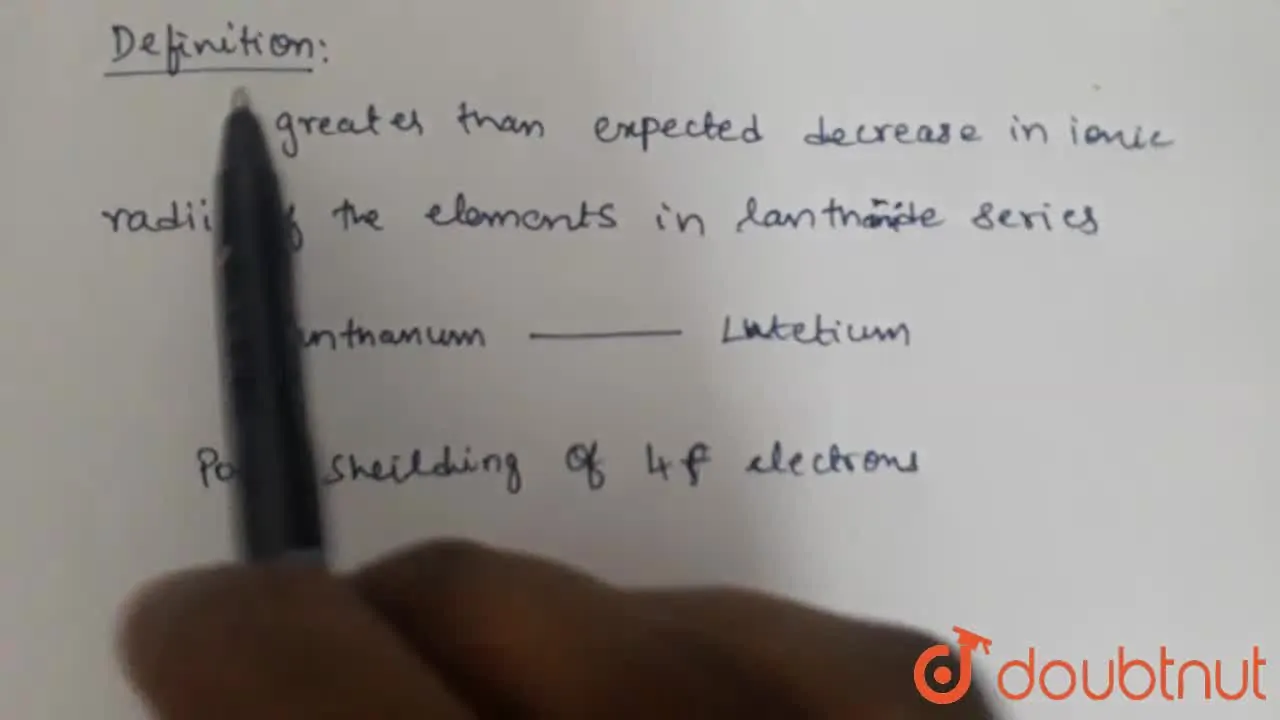 Definition:
greater than expected decrease in ionic
radii of the elements in lanthanide series
nthanum — Lutetium
Po sheilding of 4f electrons
doubtnut